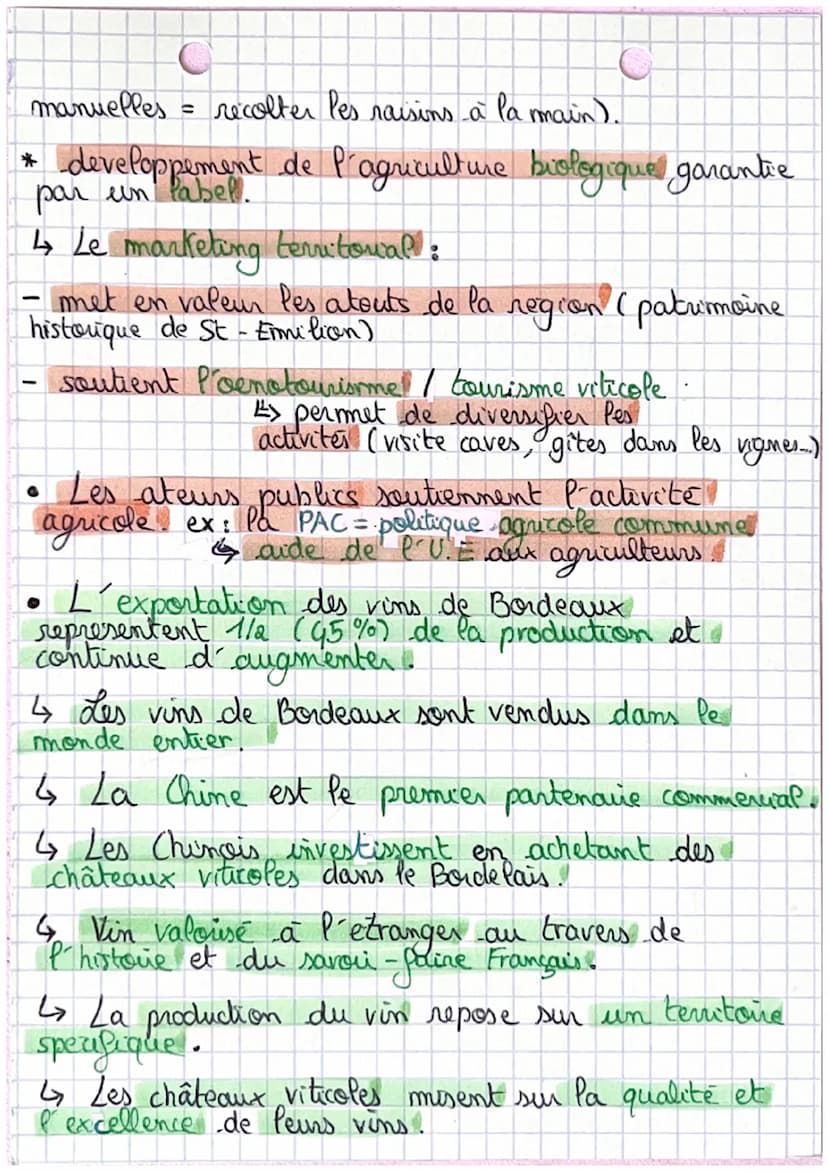 manuelles = récolter les raisins à la main).
* developpement de l'agriculture biologique garantie
par un label.
↳ Le marketing territorial :
- met en valeur les atouts de la region (patrimoine
historique de St-Emilion)
- soutient l'oenotourisme / tourisme viticole.
↳ permet de diversifier les
activités (visite caves, gîtes dans les vignes...)
• Les ateurs publics soutiennent l'activité
agricole. ex : la PAC = politique agricole commune
↳ aide de l'U.E aux agriculteurs.
• L'exportation des vins de Bordeaux
representent 1/2 (45%) de la production et
continue d'augmenter.
↳ Les vins de Bordeaux sont vendus dans le
monde entier.
↳ La Chine est le premier partenaire commercial.
↳ Les Chinois investissent en achetant des
châteaux viticoles dans le Bordelais.
↳ Vin valorisé à l'etranger au travers de
l'histoire et du savoir-faire Français.
↳ La production du vin repose sur un territoire
specifique.
↳ Les châteaux viticoles misent sur la qualité et
l'excellence de leurs vins.